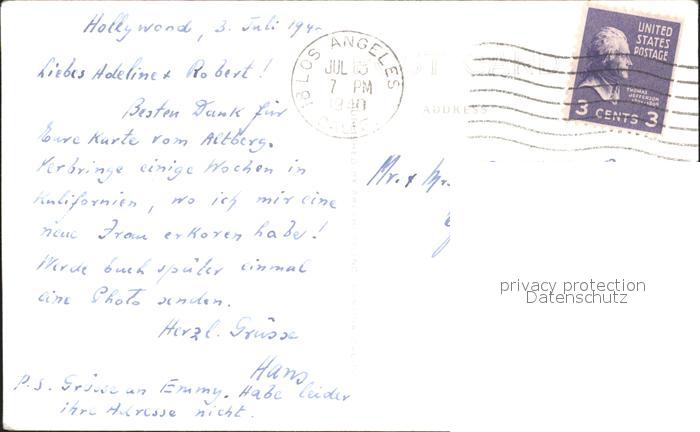 Hollywood, 3. Juli 194
Liebes Adeline + Robert!
Besten Dank für
Eure Karte vom Altberg.
Verbringe einige Wochen in
Kalifornien, wo ich mir eine
neue Frau erkoren habe!
Werde Euch später einmal
eine Photo senden.
Herzl. Grüsse
Hans
P.S. Grüsse an Emmy. Habe leider
ihre Adresse nicht.
LOS ANGELES
JUL 
7 PM
1940
UNITED
STATES
POSTAGE
THOMAS
JEFFERSON
3 CENTS 3
ADDRESS
Mr. + Mr
privacy protection
Datenschutz